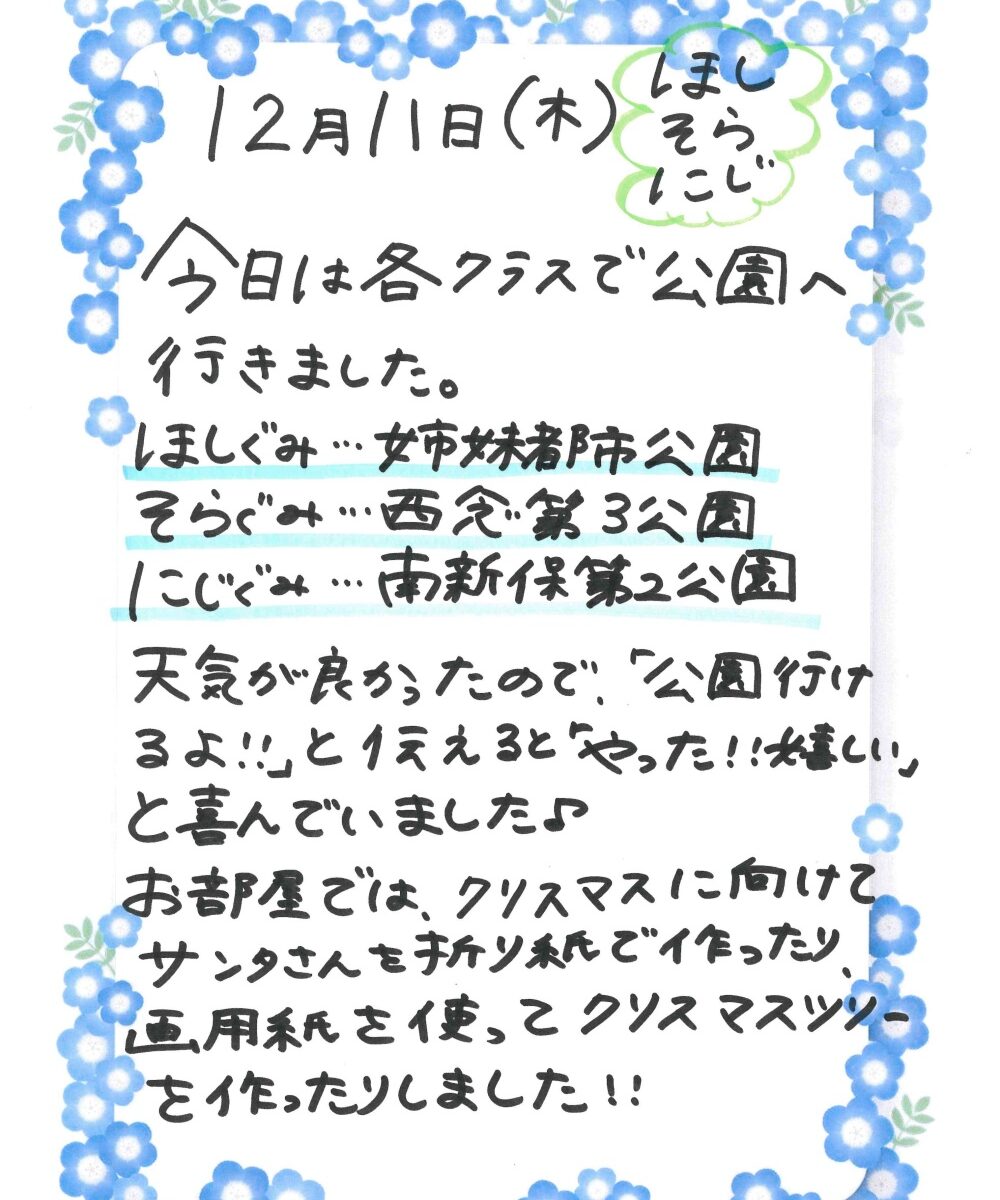 12月11日(木)
ほし
そら
にじ
今日は各クラスで公園へ
行きました。
ほしぐみ…姉妹都市公園
そらぐみ…西念第3公園
にじぐみ…南新保第2公園
天気が良かったので、「公園行け
るよ!!」と伝えると「やった!!嬉しい」
と喜んでいました♪
お部屋では、クリスマスに向けて
サンタさんを折り紙で作ったり、
画用紙を使ってクリスマスツリー
を作ったりしました!!